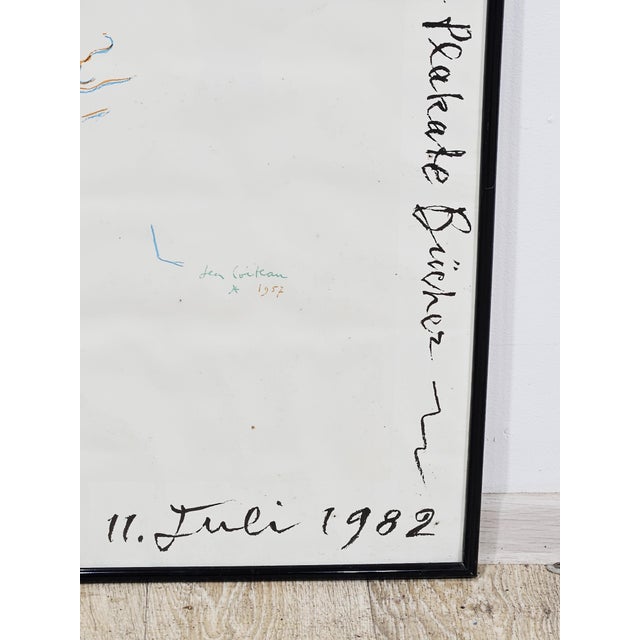 Plakate Bücher
Jean Cocteau
* 1957
11. Juli 1982